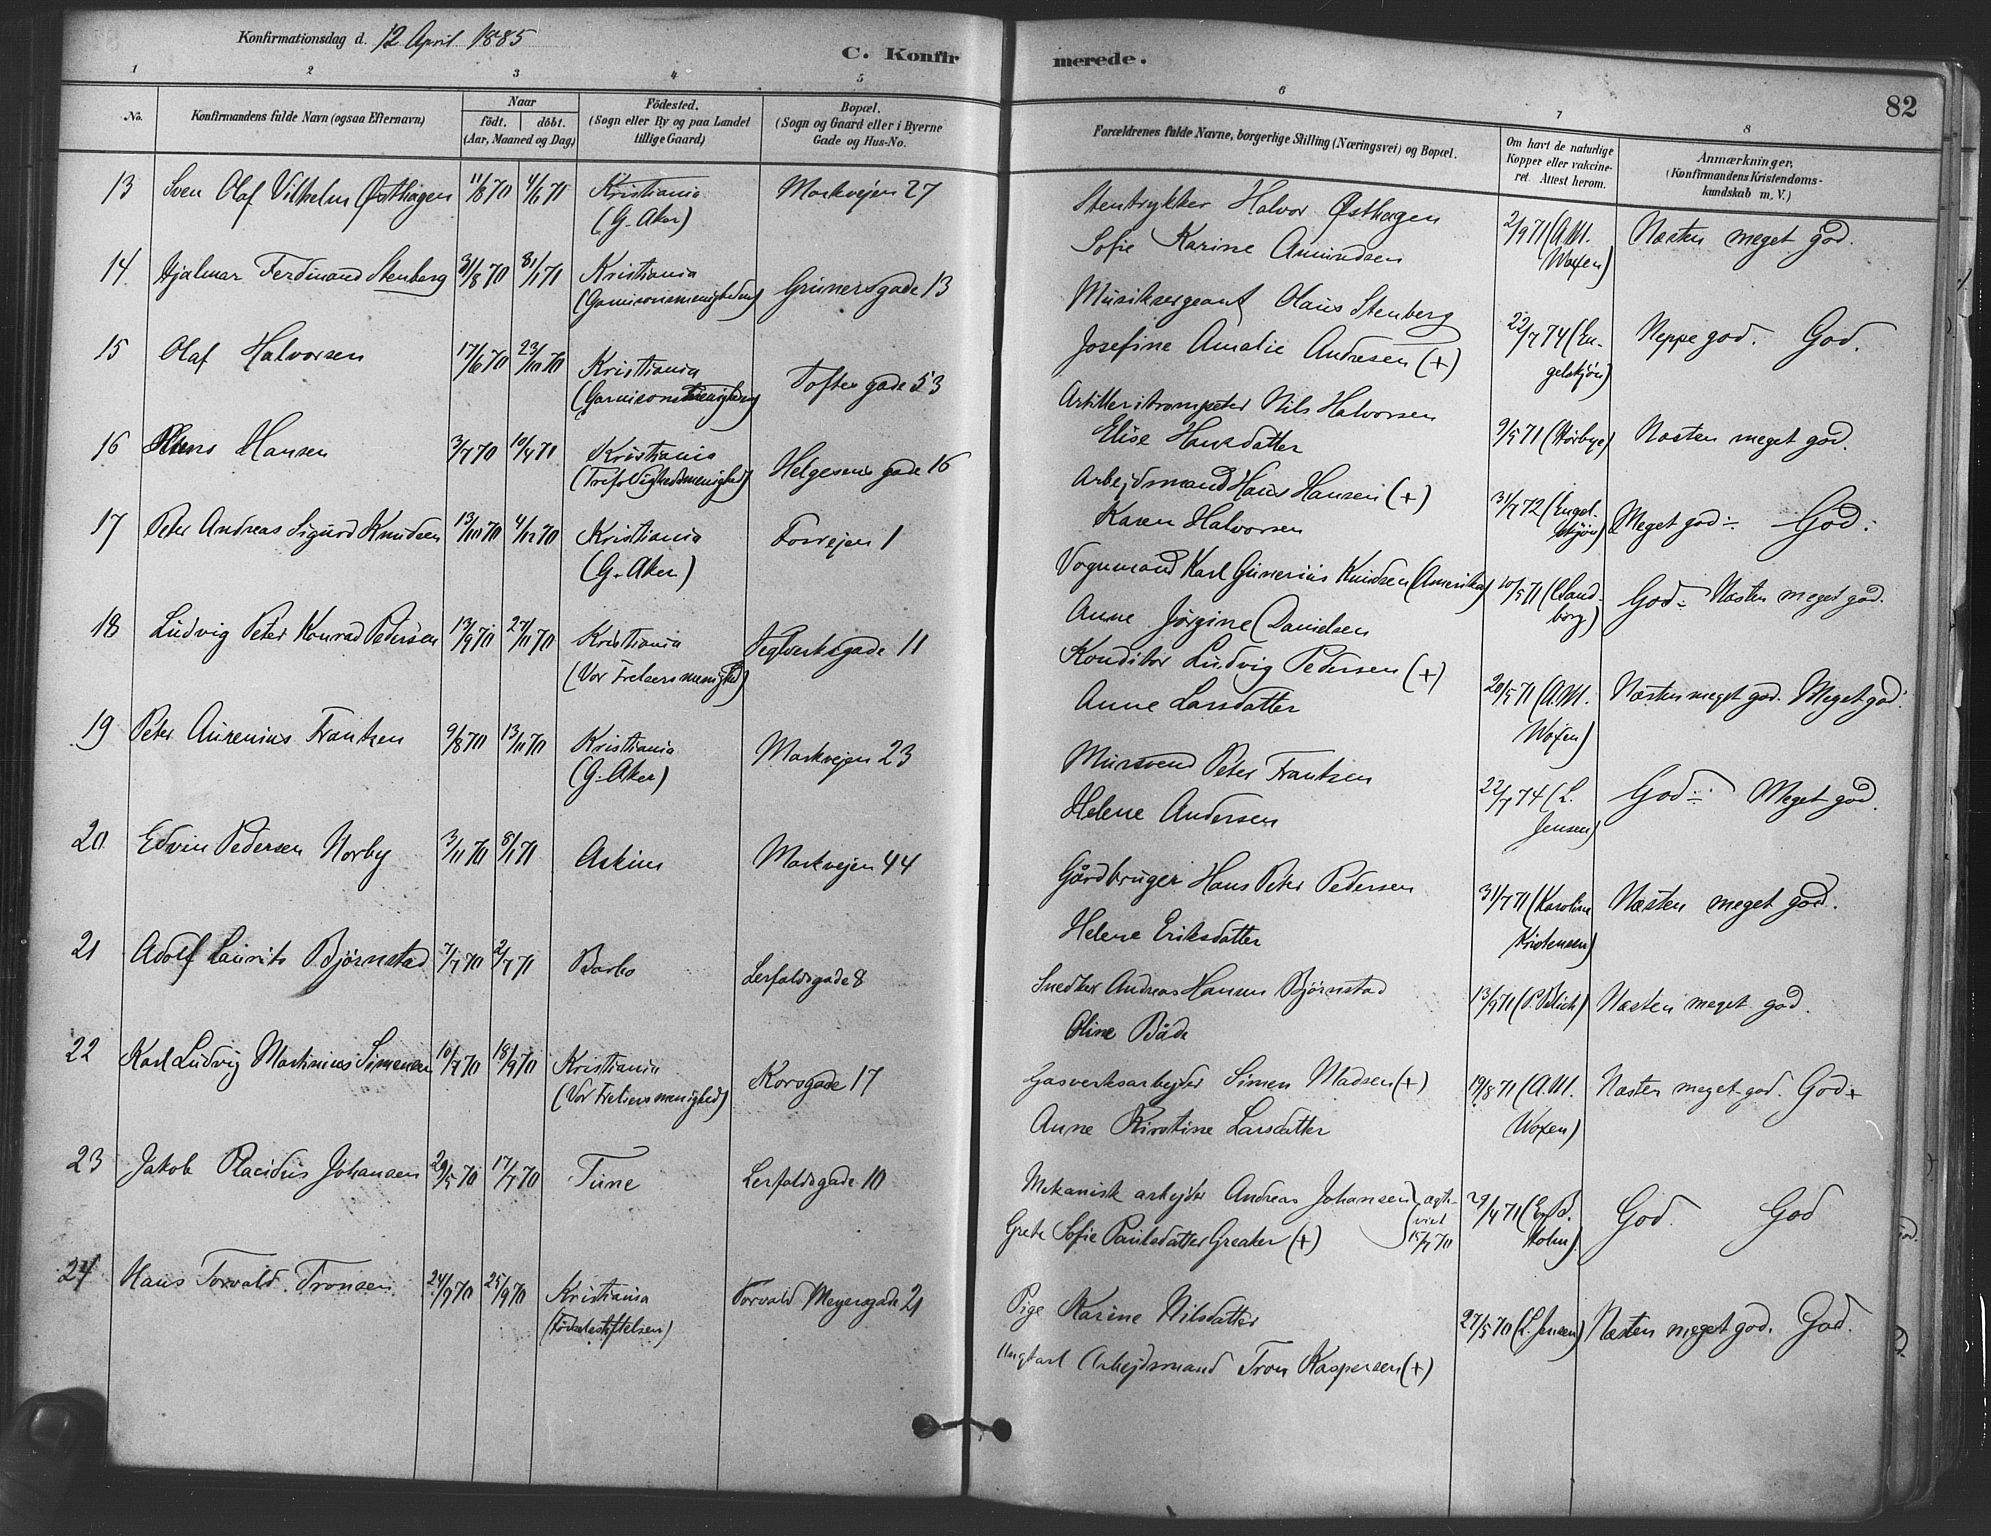 Konfirmationsdag d. 12 April 1885
C. Konfirmerede.
82
1 2 3 4 5 6 7 8
No. Konfirmandens fulde Navn (ogsaa Efternavn) Naar født. døbt. (Aar, Maaned og Dag) Fødested. (Sogn eller By og paa Landet tillige Gaard) Bopæl. (Sogn og Gaard eller i Byerne Gade og Hus-No. Forældrenes fulde Navne, borgerlige Stilling (Næringsvei) og Bopæl. Om havt de naturlige Kopper eller vakcineret. Attest herom. Anmærkninger. (Konfirmandens Kristendomskundskab m. V.)
13 Sven Olaf Vilhelm Østhagen 11/8 70 4/1 71 Kristiania (G. Aker) Markvejen 27 Stentrykker Halvor Østhagen
Sofie Karine Amundsen 2/9 71 (A.M. Woxen) Næsten meget god.
14 Hjalmar Ferdinand Stenberg 31/8 70 1/71 Kristiania (Garnisonsmenigheden) Grünersgade 13 Musiksergeant Olaus Stenberg
Josefine Amalie Andresen (+) 22/7 74 (Engelskjøn) Neppe god. God.
15 Olaf Halvorsen 17/6 70 23/10 70 Kristiania (Garnisonsmenigheden) Toftes gade 53 Artilleritrompeter Nils Halvorsen
Elise Hansdatter 9/5 71 Næsten meget god.
16 Hans Hansen 3/7 70 10/4 71 Kristiania (Trefoldighedsmenighed) Helgesens gade 16 Arbejdsmand Hans Hansen (+)
Karen Halvorsen 31/7 72 (Engelskjøn) Meget god ÷ God.
17 Peter Andreas Sigurd Knudsen 13/10 70 4/12 70 Kristiania (G. Aker) Fosvejen 1 Vognmand Karl Gunerius Knudsen (Amerika)
Anne Jørgine Danielsen 10/5 71 (Sandborg) God ÷ Næsten meget god.
18 Ludvig Peter Konrad Pedersen 13/9 70 27/11 70 Kristiania (Vor Frelsers menighed) Teglverksgade 11 Konditor Ludvig Pedersen (+)
Anne Larsdatter 20/5 71 (A.M. Woxen) Næsten meget god. Meget god.
19 Peter Aurenius Frantzen 9/8 70 13/11 70 Kristiania (G. Aker) Markvejen 23 Mursvend Peter Frantzen
Helene Andersen 22/7 74 (L. Jensen) God ÷ Meget god.
20 Edvin Pedersen Norby 3/11 70 8/1 71 Askim Markvejen 44 Gårdbruger Hans Peter Pedersen
Helene Eriksdatter 31/7 71 (Karoline Kristensen) Næsten meget god.
21 Adolf Laurits Bjørnstad 7/7 70 2/7 71 Barbo Lerfaldsgade 8 Snedker Andreas Hansen Bjørnstad
Oline Både 13/9 71 Næsten meget god.
22 Karl Ludvig Martinius Simensen 10/7 70 18/9 70 Kristiania (Vor Frelsers menighed) Korsgade 17 Gasverksarbejder Simen Madsen (+)
Anne Kirstine Larsdatter 19/8 71 (A.M. Woxen) Næsten meget god. God +
23 Jakob Placidus Johansen 29/5 70 17/7 70 Tune Lerfaldsgade 10 Mekanisk arbejder Andreas Johansen
Grete Sofie Paulsdatter Greaker (+) ægteviet 15/7 70 29/4 71 (Holm) God. God
24 Hans Torvald Tronsen 24/9 70 25/9 70 Kristiania (Fødselsstiftelsen) Torvald Meyersgade 21 Pige Karine Nilsdatter
Ungkarl Arbejdsmand Tron Kaspersen (+) 27/5 70 (L. Jensen) Næsten meget god. God.